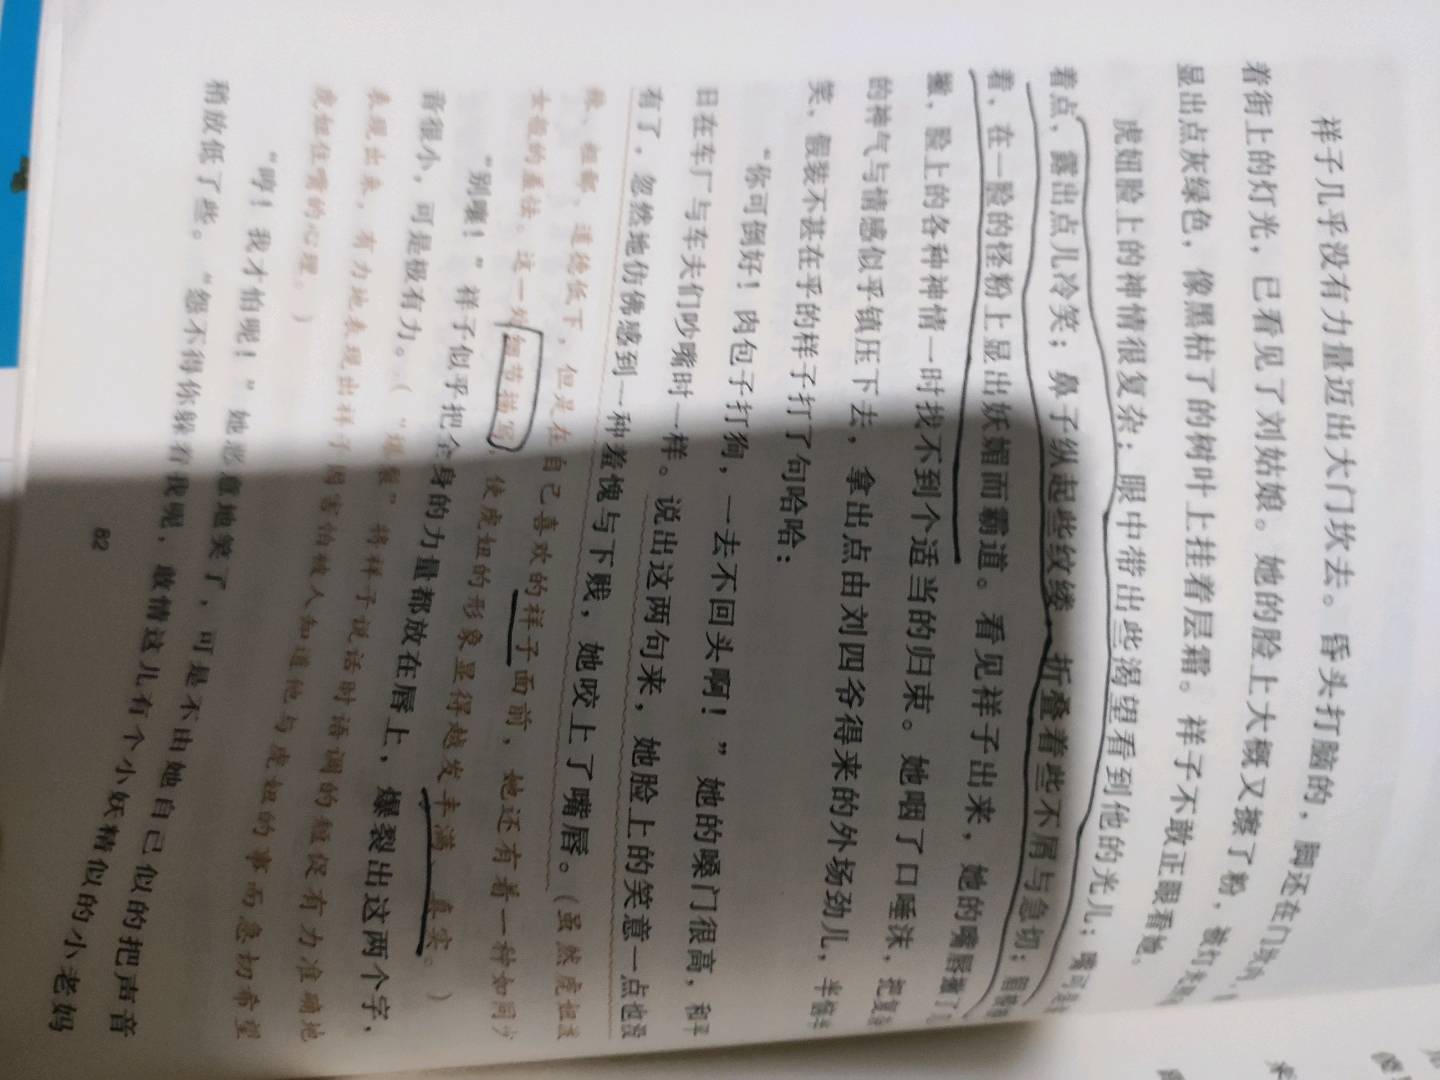 祥子几乎没有力量迈出大门坎去。昏头打脑的，脚还在门坎内，
着街上的灯光，已看见了刘姑娘。她的脸上大概又擦了粉，被灯光
显出点灰绿色，像黑枯了的树叶上挂着层霜。祥子不敢正眼看她。
虎妞脸上的神情很复杂：眼中带出些渴望看到他的光儿；嘴可是
着点，露出点儿冷笑；鼻子纵起些纹缕，折叠着些不屑与急切；眉棱
着，在一脸的怪粉上显出妖媚而霸道。看见祥子出来，她的嘴唇撇了几
撇，脸上的各种神情一时找不到个适当的归束。她咽了口唾沫，把复杂
的神气与情感似乎镇压下去，拿出点由刘四爷得来的外场劲儿，半恼半
笑，假装不甚在乎的样子打了句哈哈：
“你可倒好！肉包子打狗，一去不回头啊！”她的嗓门很高，和平
日在车厂与车夫们吵嘴时一样。说出这两句来，她脸上的笑意一点也没
有了，忽然地仿佛感到一种羞愧与下贱，她咬上了嘴唇。（虽然虎妞泼
辣、粗鄙，道德低下，但是在自己喜欢的祥子面前，她还有着一种如同少
女般的羞怯。这一处细节描写，使虎妞的形象显得越发丰满、真实。）
“别嚷！”祥子似乎把全身的力量都放在唇上，爆裂出这两个字，
音很小，可是极有力。（“爆裂”将祥子说话时语调的短促有力准确地
表现出来，有力地表现出祥子因害怕被人知道他与虎妞的事而急切希望
虎妞住嘴的心理。）
“哼！我才怕呢！”她恶意地笑了，可是不由她自己似的把声音
稍放低了些。“怨不得你躲着我呢，敢情这儿有个小妖精似的小老妈
82